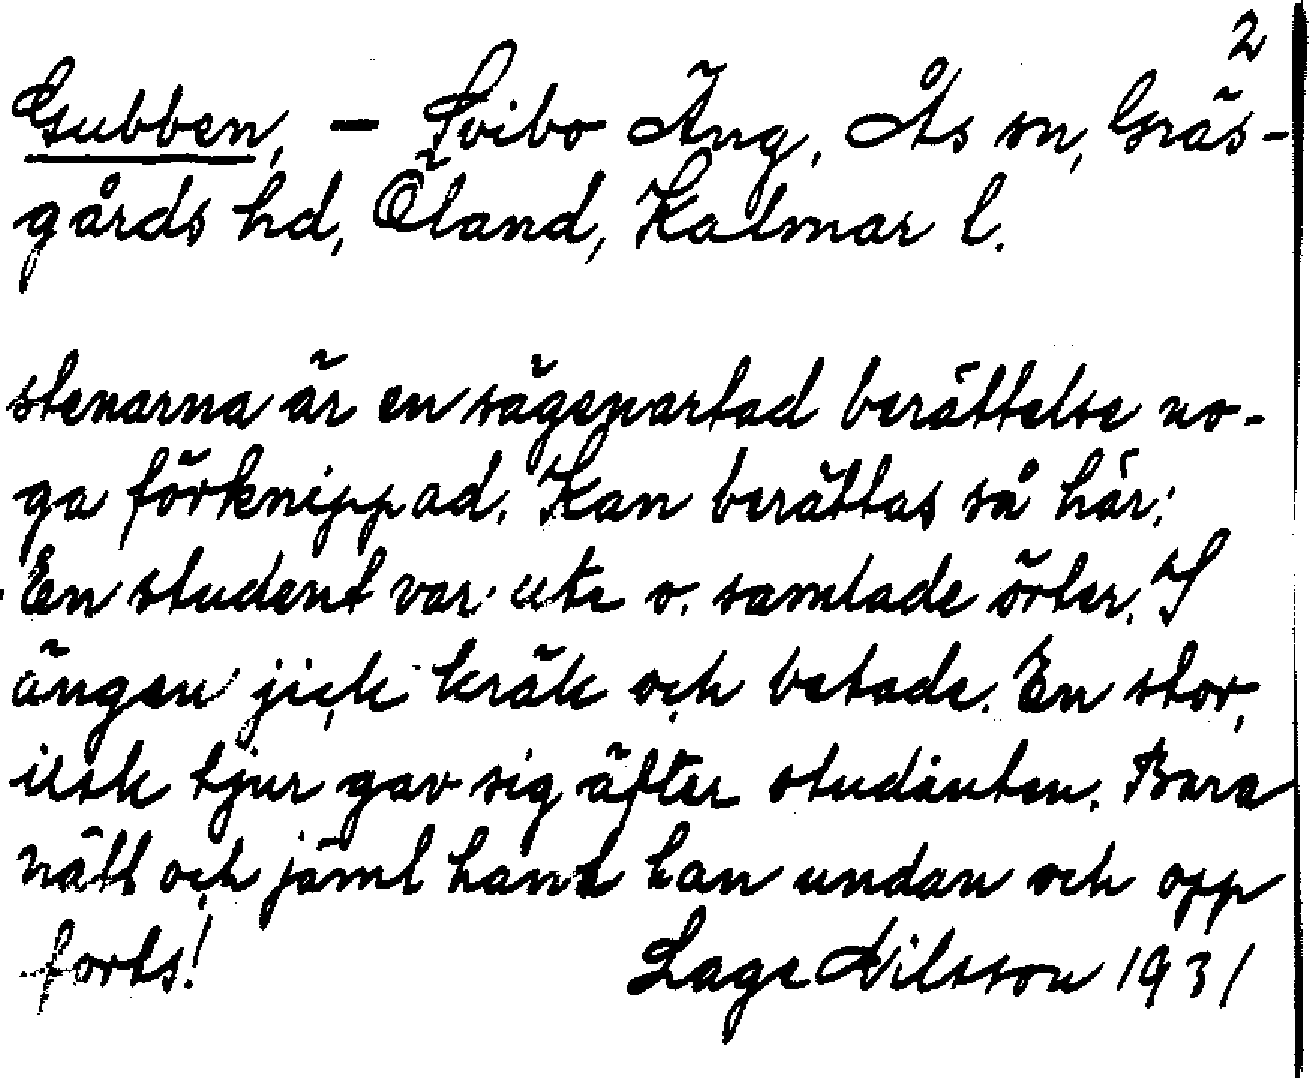 2
Gubben, - Svibo Äng, Ås sn, Gräs-
gårds hd, Öland, Kalmar l.
stenarna är en sägenartad berättelse no-
ga förknippad. Kan berättas så här:
En student var ute o. samlade örter. I
ängen jick kräk och betade. En stor,
ilsk tjur gav sig äfter studänten. Bara
nätt och jämt hant han undan och opp
forts! Lage Nilsson 1931